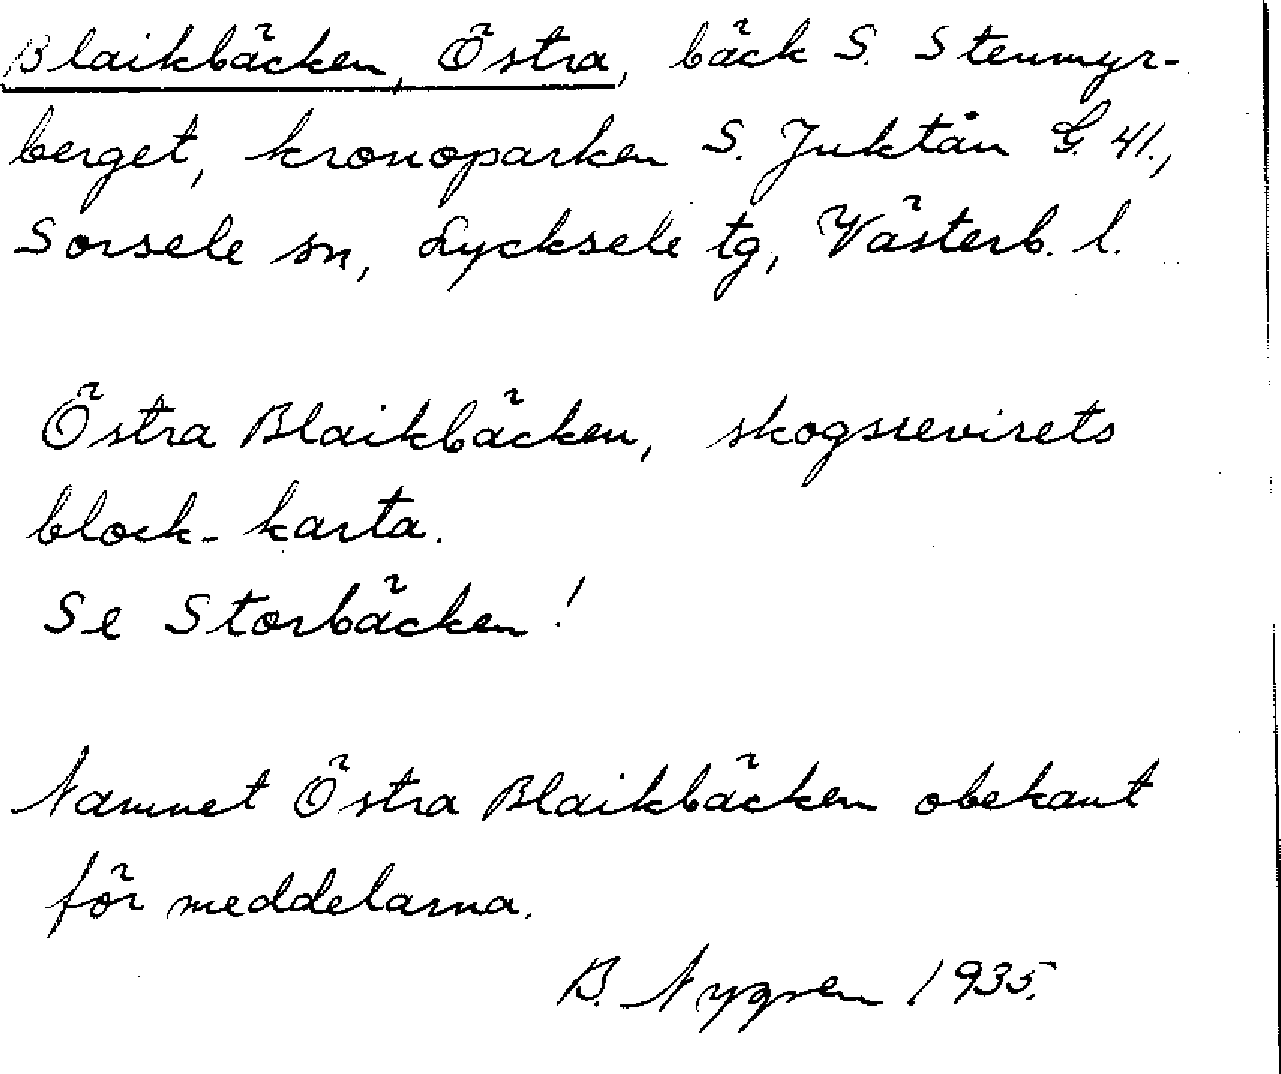 Blaikbäcken, Östra, bäck S. Stenmyr-
berget, kronoparken S. Juktån G. 41.,
Sorsele sn, Lycksele tg, Västerb. l.
Östra Blaikbäcken, skogsrevirets
block-karta.
Se Storbäcken!
Namnet Östra Blaikbäcken obekant
för meddelarna.
B. Nygren 1935.